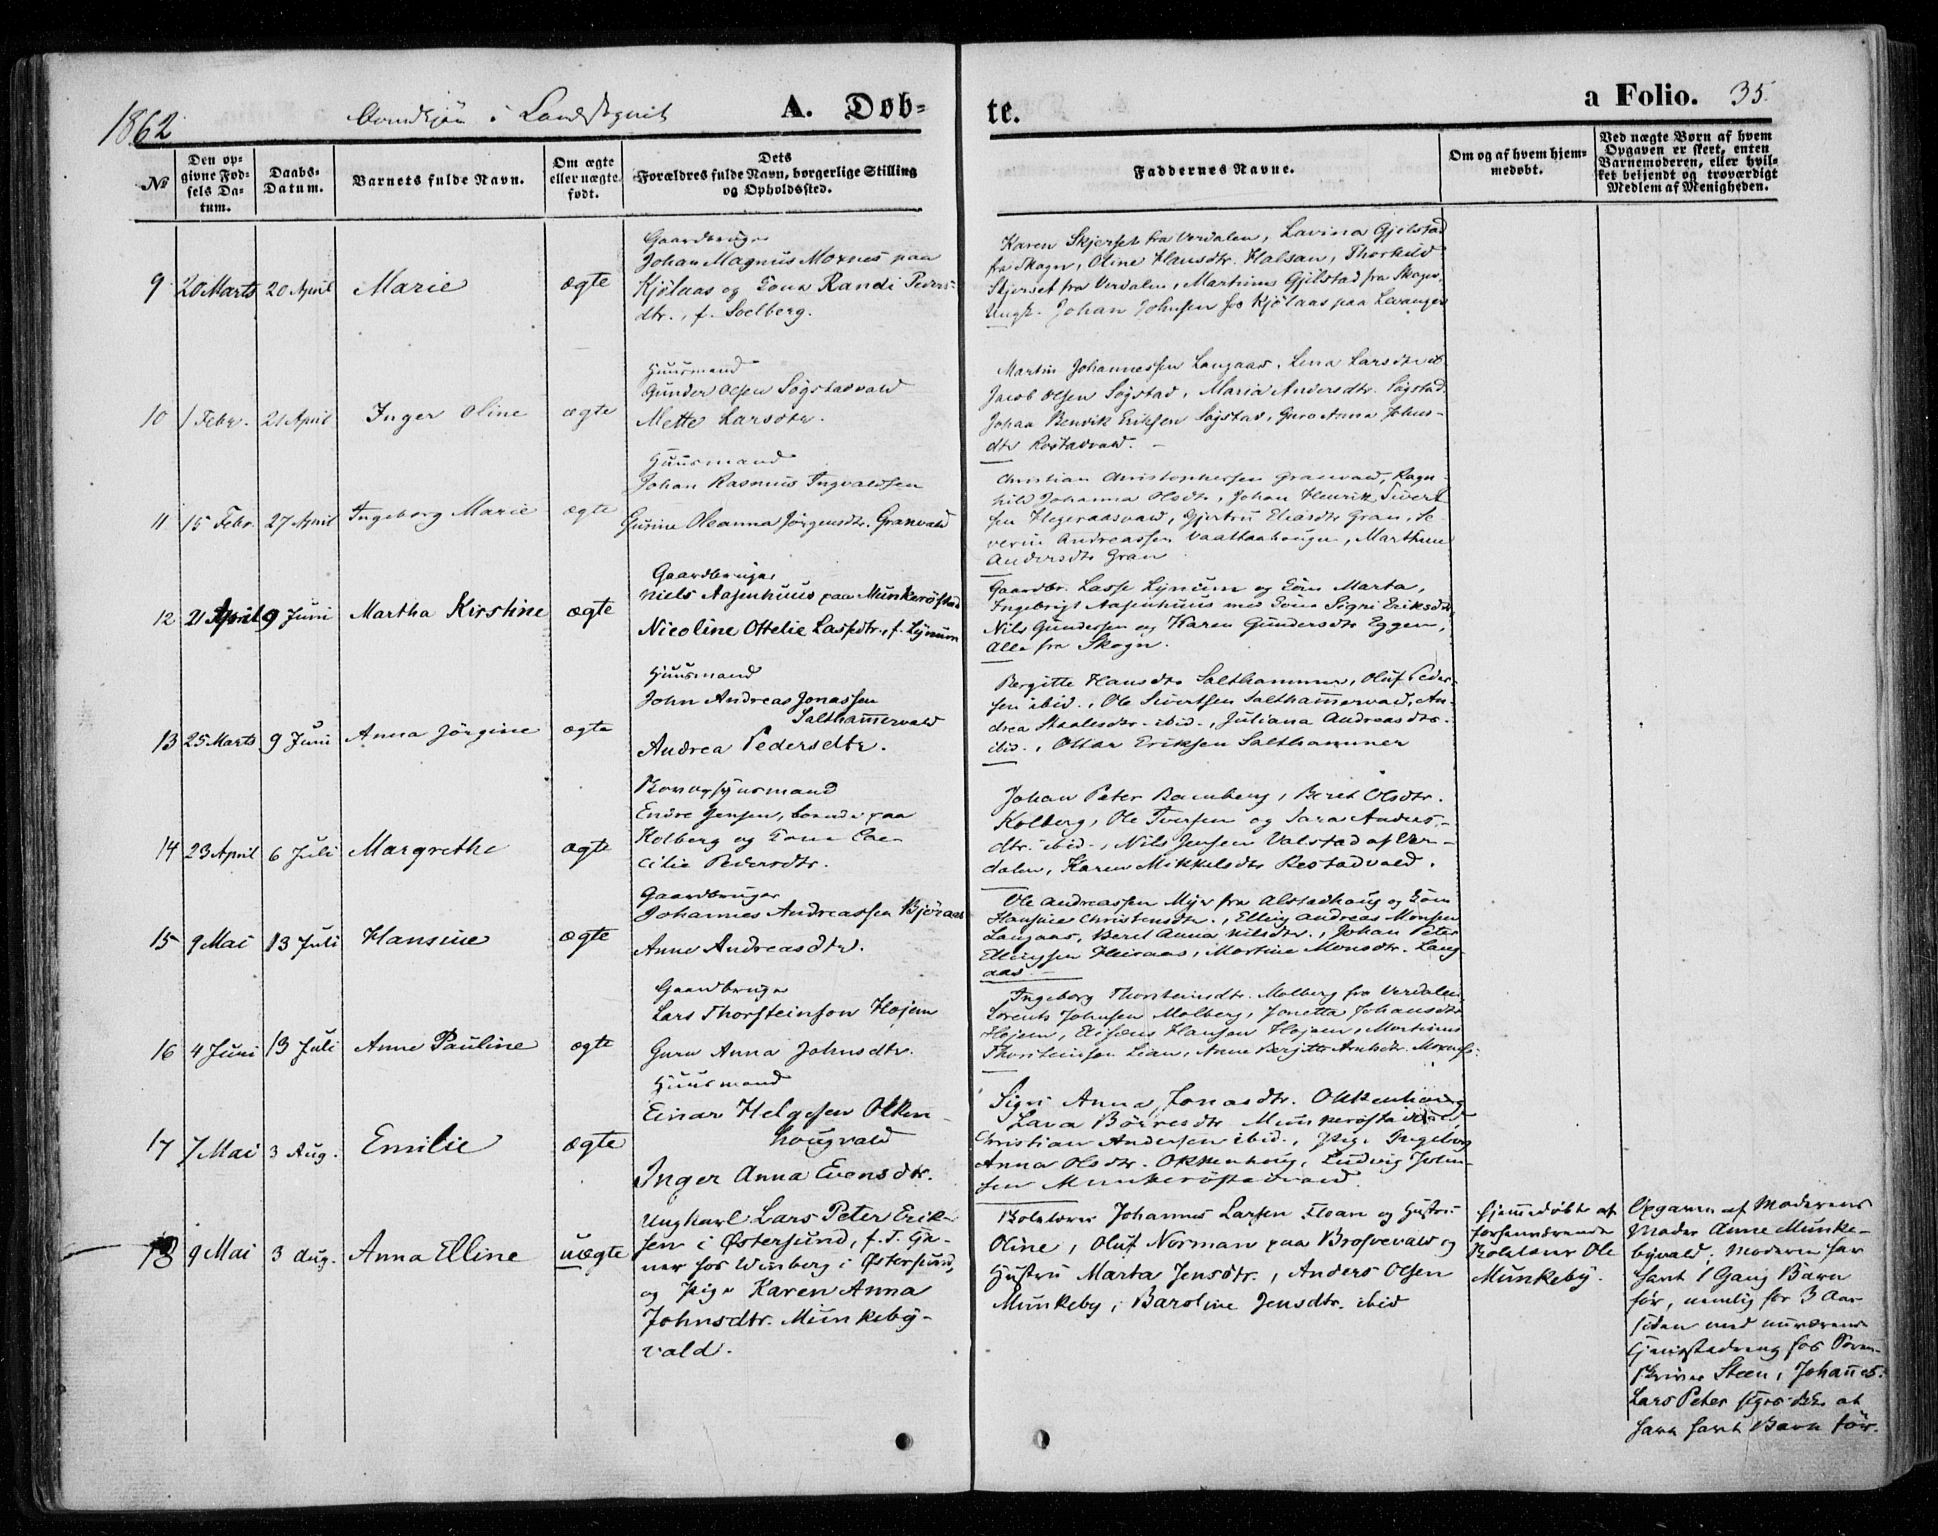 1862
i
A. Døb-
te.
a Folio. 35.
No
Den op-
givne Fød-
sels Da-
tum.
Daabs-
Datum.
Barnets fulde Navn.
Om ægte
eller uægte
født.
Dets
Forældres fulde Navn, borgerlige Stilling
og Opholdssted.
Faddernes Navne.
Om og af hvem hjem-
medøbt.
Ved uægte Børn af hvem
Opgaven er skeet, enten
Barnemoderen, eller hvil-
ket bekjendt og troværdigt
Medlem af Menigheden.
9 20 Marts 20 April Marie ægte
Gaardbruger
Johan Magnus Moxnes paa
Kjølaas og Kona Randi Peders-
dtr., f. Soelberg.
Karen Skjerset fra Verdalen, Lavina Gjilstad
fra Skogn, Oline Hansdtr. Halsan, Thorkild
Skjerset fra Verdalen, Martinus Gjilstad fra Skogn,
Ungk. Johan Johnsen hos Kjølaas paa Levanger
10 1 Febr. 21 April Inger Oline ægte
Huusmand
Gunder Olsen Søgstadvald
Mette Larsdtr.
Martin Johannessen Langaas, Lena Larsdtr
Jacob Olsen Søgstad, Maria Andersdtr. Søgstad
Johan Bendik Eriksen Søgstad, Guro Anna Johns-
dtr Rostadvald.
11 15 Febr. 27 April Ingeborg Marie ægte
Huusmand
Johan Rasmus Ingvaldsen
Gurine Oleanna Jørgensdtr. Granvald
Christian Christophersen Granvald, Ragn-
hild Johanna Olsdtr, Johan Henrik Sivert-
sen Hegeraasvald, Gjertru Eliasdtr Gran, Se-
verin Andreassen Vaattaahaugen, Marthine
Andersdtr Gran
12 21 April 9 Juni Martha Kirstine ægte
Gaardbruger
Niels Aasenhuus paa Munkerøstad
Nicoline Ottelie Lassedtr., f. Lynum
Gaardbr. Lasse Lynum og Kone Marta,
Ingebrigt Aasenhuus med Kone Sigri Eriksdtr
Nils Gundersen og Karen Gundersdtr Eggen,
alle fra Skogn.
13 25 Marts 9 Juni Anna Jørgine ægte
Huusmand
John Andreas Jonassen
Salthammervald
Andrea Pedersdtr.
Bergitte Hansdtr Salthammer, Oluf Peder-
sen ibid., Ole Sivertsen Salthammervald, An-
drea Staalesdtr. ibid., Juliana Andreasdtr.
ibid., Ottar Eriksen Salthammer
14 23 April 6 Juli Margrethe ægte
Endre Jensen, boende paa
Kolberg og Kone Cae-
cilie Pedersdtr.
Johan Peter Ramberg, Beret Olsdtr.
Kolberg, Ole Iversen og Sara Anders-
dtr. ibid., Nils Jensen Valstad af Ver-
dalen, Karen Mikkelsdtr Restadvald.
15 9 Mai 13 Juli Hansine ægte
Gaardbruger
Johannes Andreassen Bjøraas
Anne Andreasdtr.
Ole Andreassen Myr fra Alstadhaug og Kone
Hansine Christensdtr., Elling Andreas Monsen
Langaas, Beret Anna Nilsdtr., Johan Peter
Ellingsen Heiraas, Martine Monsdtr. Lang-
aas
16 4 Juni 13 Juli Anne Pauline ægte
Gaardbruger
Lars Thorsteinson Hojem
Guru Anna Johnsdtr.
Ingeborg Thorsteinsdtr. Molberg fra Verdalen
Lorents Johnsen Molberg, Jonetta Johansdtr
Hojem, Eliseus Hansen Hojem, Martinus
Thorsteinsen Lian, Anne Bergitte Arntsdtr. Moxnes.
17 7 Mai 3 Aug. Emilie ægte
Huusmand
Einar Helgesen Okken-
hougvald
Inger Anna Evensdtr.
Sigri Anna Jonasdtr. Okkenhoug
Lava Børresdtr Munkerøstadvald,
Christian Andersen ibid., Pige Ingeborg
Anna Olsdtr. Okkenhoug, Ludvig John-
sen Munkerøstadvald.
18 9 Mai 3 Aug. Anna Elline uægte
Ungkarl Lars Peter Erik-
sen i Østersund, f. T. Ga-
ver hos Winberg i Østersund,
og Pige Karen Anna
Johnsdtr. Munkeby-
vald.
Johannes Larsen Floan og Hustru
Oline, Oluf Norman paa Brosvevald og
Hustru Marta Jensdtr., Anders Olsen
Munkeby, Baroline Jensdtr. ibid
hjemmedøbt af
forhenværende
Ole
Munkeby.
Opgaven af Moderens
Moder Anne Munke-
byvald; Moderen har
havt 1 Gang Barn
før, nemlig for 3 Aar
siden med nuværende
hos
Steen, Johannes.
Lars Peter siges ikke at
have havt Barn før.